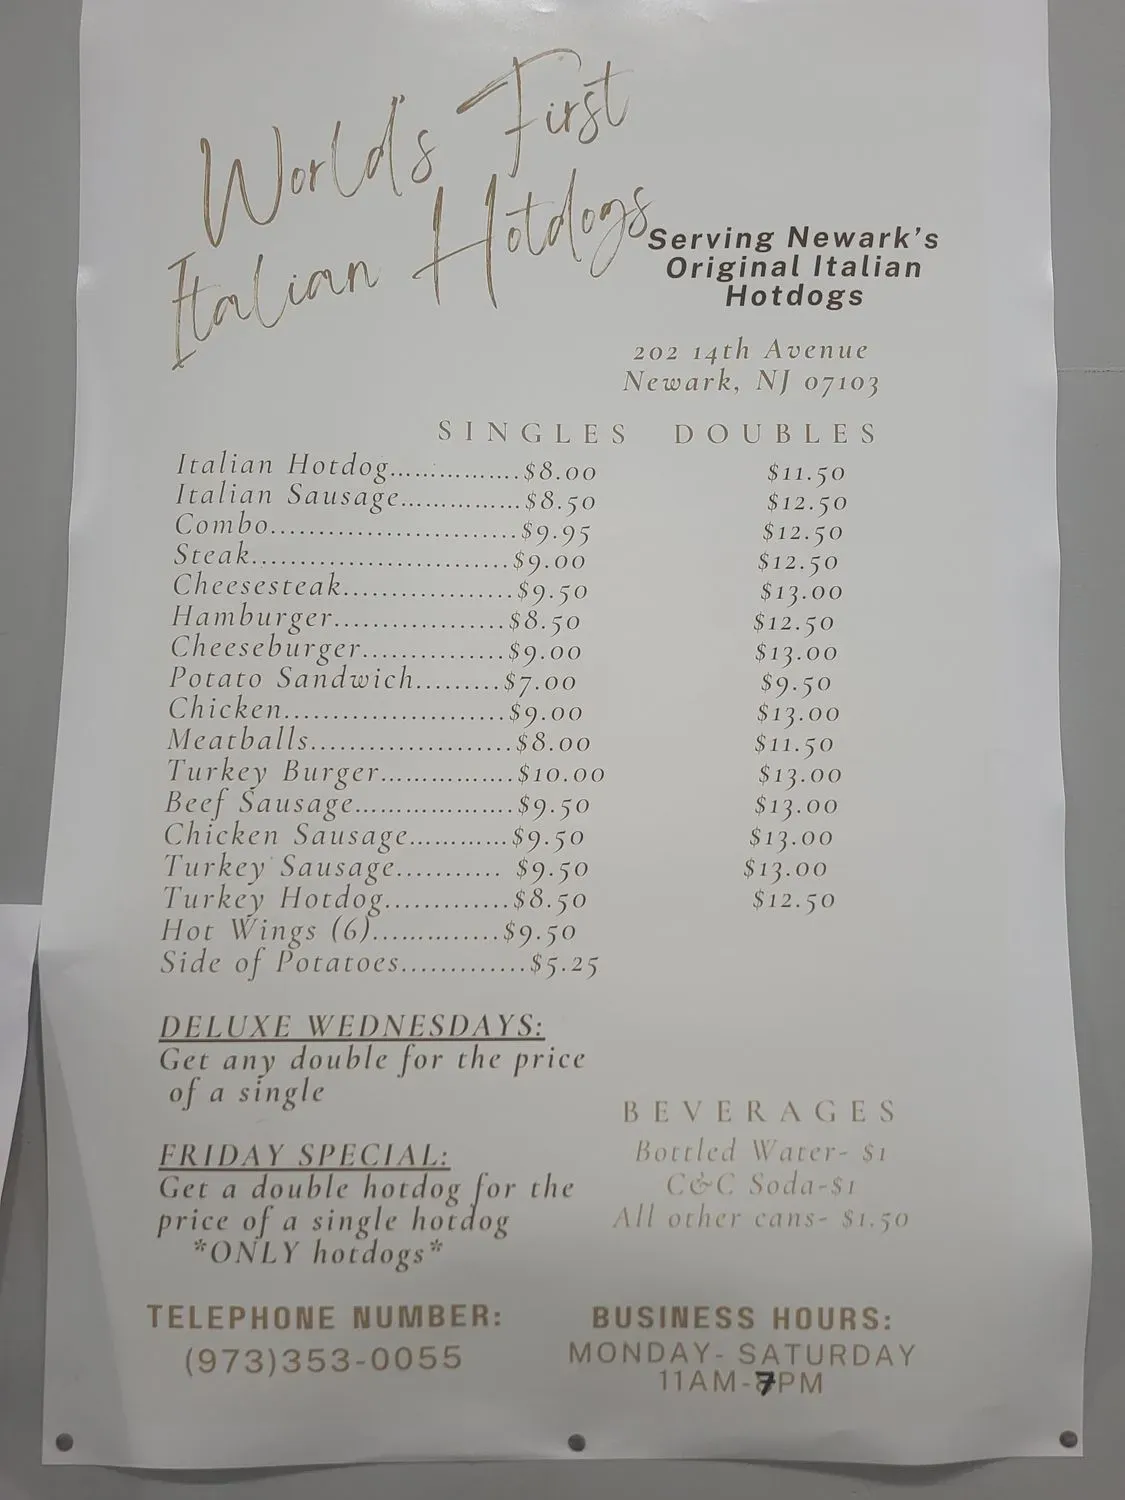 World's First
Italian Hotdogs
Serving Newark's
Original Italian
Hotdogs
202 14th Avenue
Newark, NJ 07103
SINGLES DOUBLES
Italian Hotdog................$8.00 $11.50
Italian Sausage...............$8.50 $12.50
Combo..........................$9.95 $12.50
Steak...........................$9.00 $12.50
Cheesesteak..................$9.50 $13.00
Hamburger..................$8.50 $12.50
Cheeseburger...............$9.00 $13.00
Potato Sandwich.........$7.00 $9.50
Chicken.......................$9.00 $13.00
Meatballs.....................$8.00 $11.50
Turkey Burger..............$10.00 $13.00
Beef Sausage.................$9.50 $13.00
Chicken Sausage...........$9.50 $13.00
Turkey Sausage........... $9.50 $13.00
Turkey Hotdog.............$8.50 $12.50
Hot Wings (6).............$9.50
Side of Potatoes.............$5.25
DELUXE WEDNESDAYS:
Get any double for the price
of a single
FRIDAY SPECIAL:
Get a double hotdog for the
price of a single hotdog
*ONLY hotdogs*
BEVERAGES
Bottled Water- $1
C&C Soda-$1
All other cans- $1.50
TELEPHONE NUMBER:
(973)353-0055
BUSINESS HOURS:
MONDAY- SATURDAY
11AM-7PM